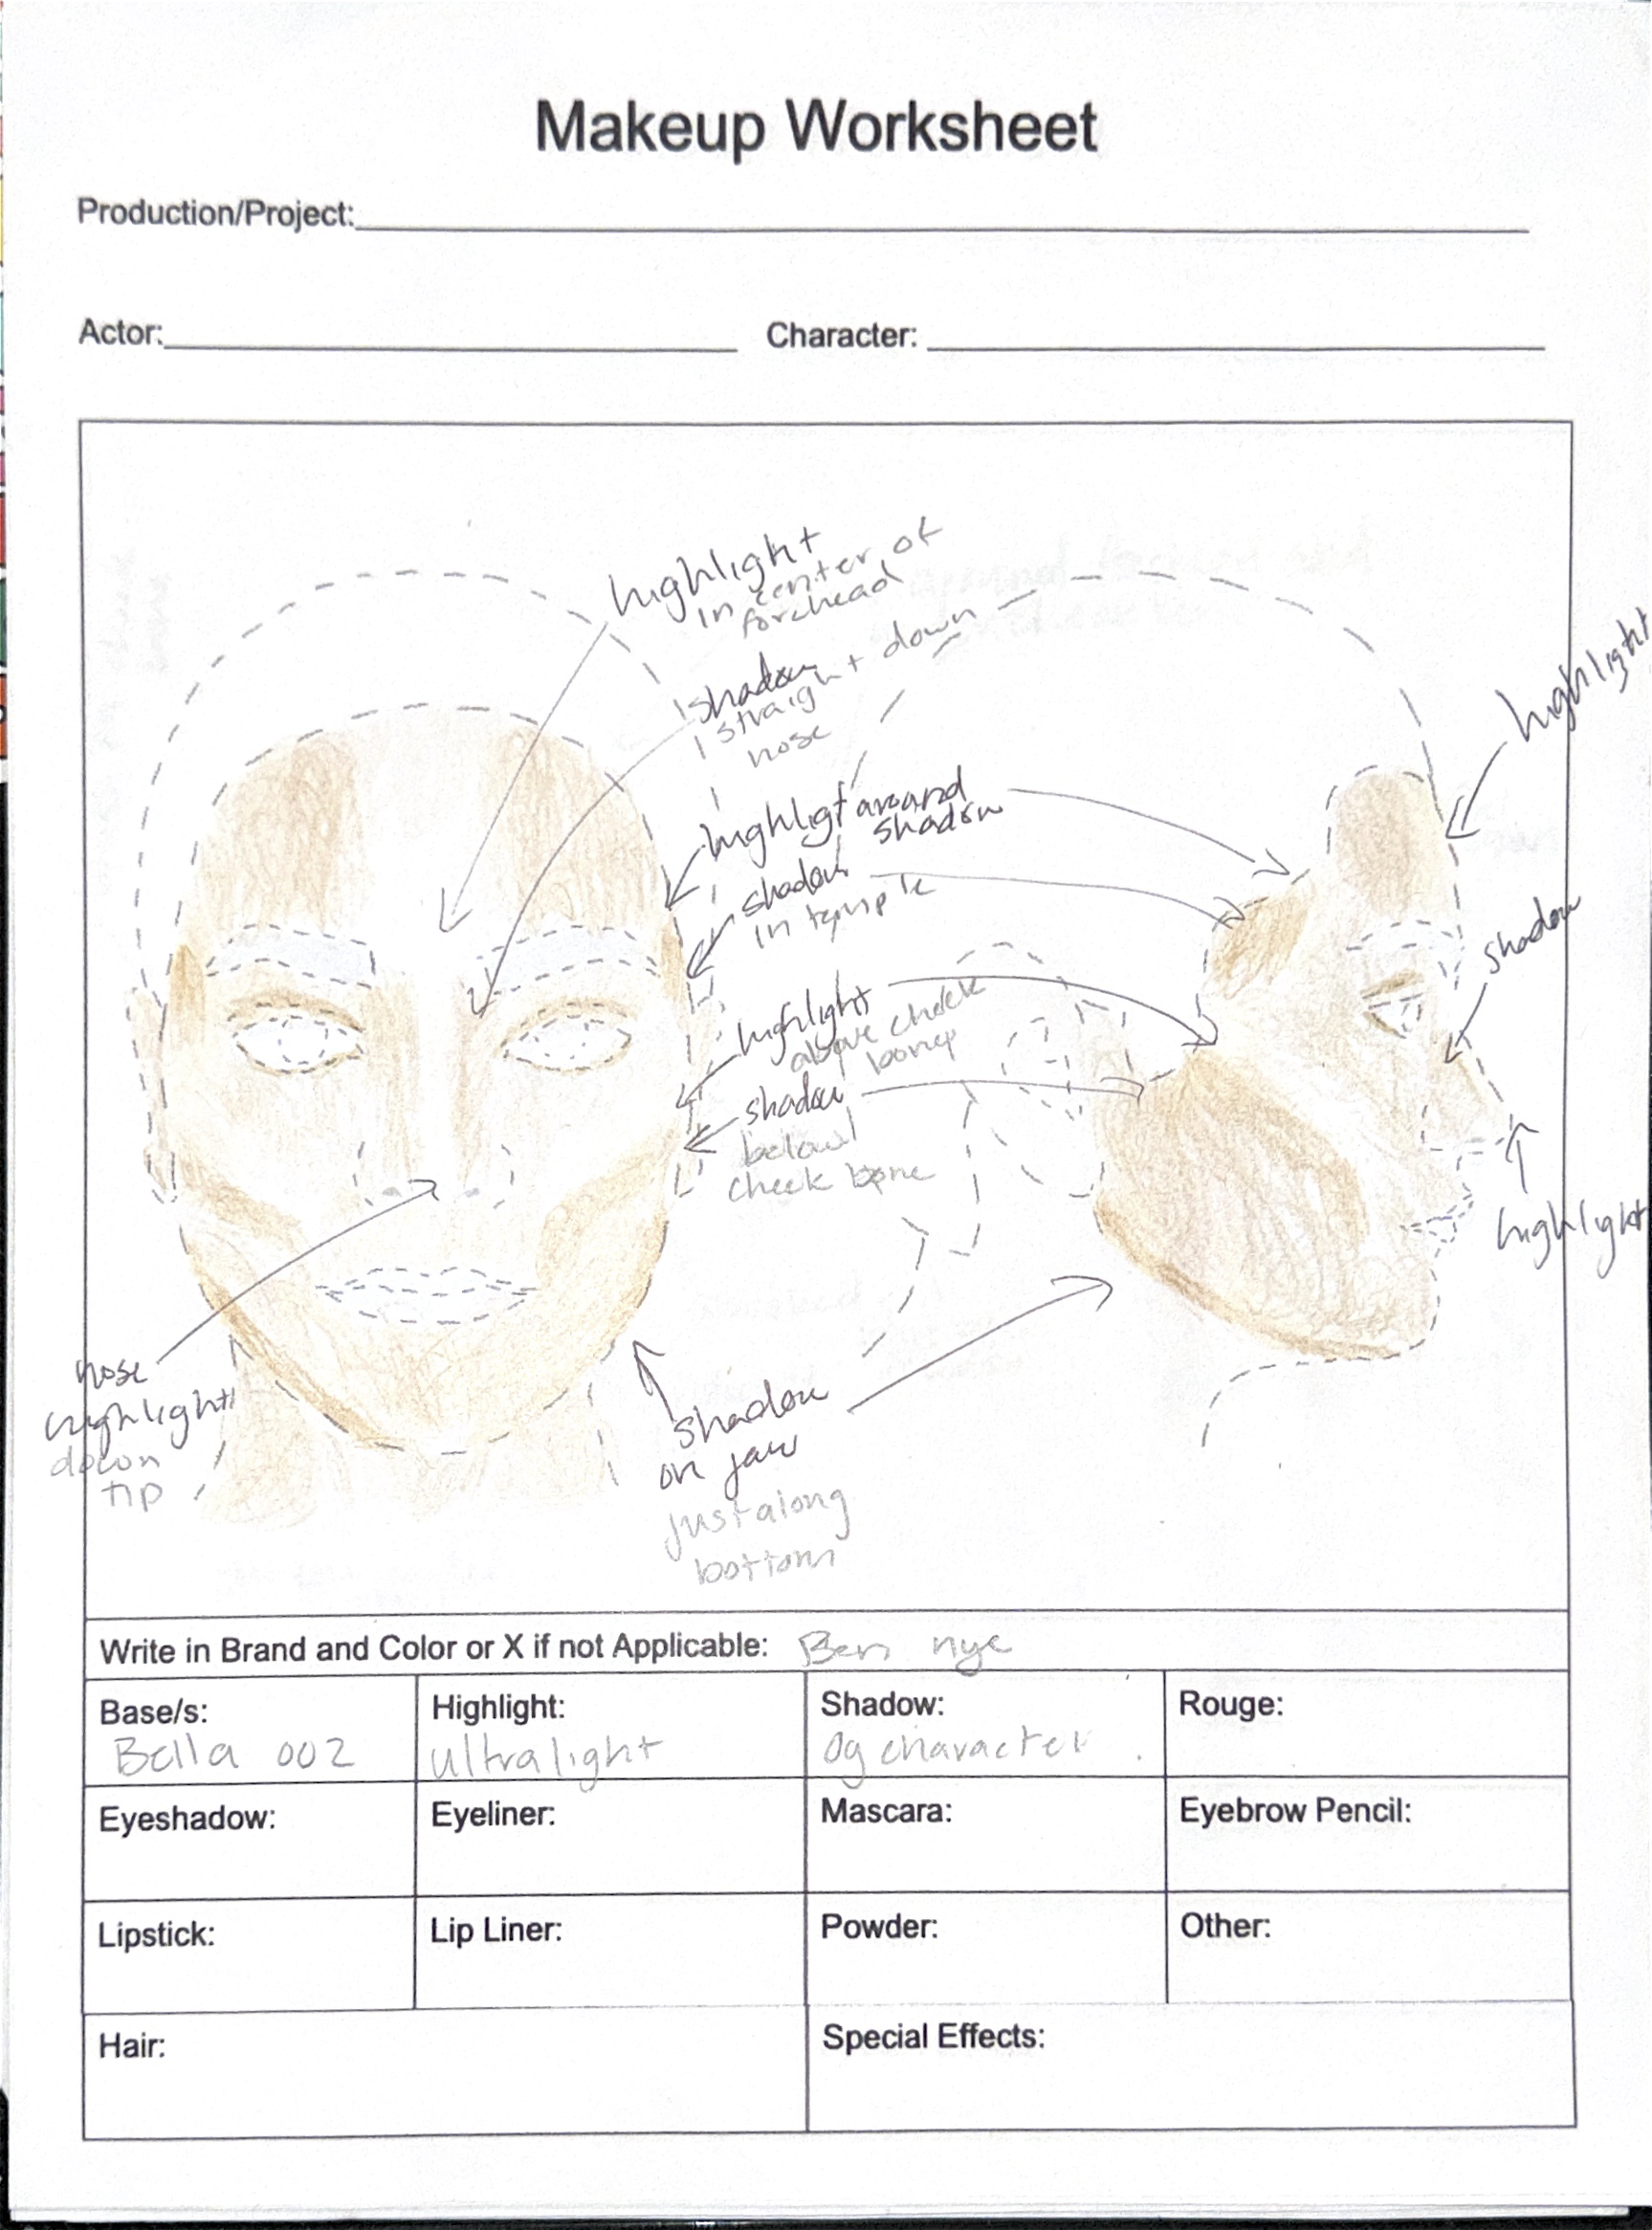 Makeup Worksheet
Production/Project:
Actor:
Character:
highlight
in center of
forehead
shadow
straight + down
nose
highligt around
shadow
shadow
in temple
highlight
above cheek
bone
shadow
below
cheek bone
highlight
shadow
highlight
nose
highlight
down
tip
shadow
on jaw
just along
bottom
Write in Brand and Color or X if not Applicable: Ben nye
Base/s:
Bella 002
Highlight:
ultralight
Shadow:
Og character
Rouge:
Eyeshadow:
Eyeliner:
Mascara:
Eyebrow Pencil:
Lipstick:
Lip Liner:
Powder:
Other:
Hair:
Special Effects: